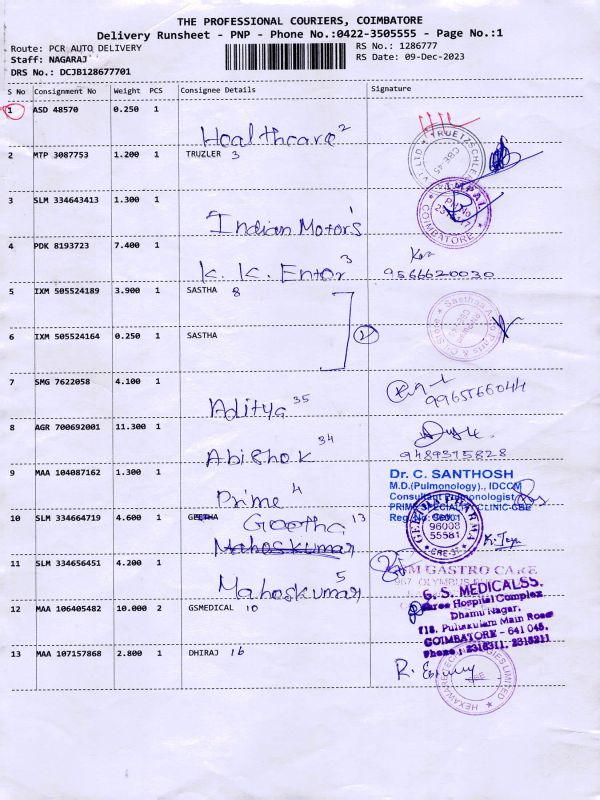 THE PROFESSIONAL COURIERS, COIMBATORE
Delivery Runsheet - PNP - Phone No.:0422-3505555 - Page No.:1
Route: PCR AUTO DELIVERY
RS No.: 1286777
Staff: NAGARAJ
RS Date: 09-Dec-2023
DRS No.: DCJB128677701
S No Consignment No Weight PCS Consignee Details Signature
1 ASD 48570 0.250 1
Healthcare 2
2 MTP 3087753 1.200 1 TRUZLER 3
3 SLM 334643413 1.300 1
Indian Motor's
COIMBATORE
4 PDK 8193723 7.400 1
K. K. Enter 3
9566620030
5 IXM 505524189 3.900 1 SASTHA 8
6 IXM 505524164 0.250 1 SASTHA
2
7 SMG 7622058 4.100 1
Aditya 35
9965766044
8 AGR 700692001 11.300 1
Abishek 34
9489375828
9 MAA 104087162 1.300 1
Prime 4
Dr. C. SANTHOSH
M.D.(Pulmonology)., IDCCM
Consultant Pulmonologist
10 SLM 334664719 4.600 1
Geetha 13
96008
55581
11 SLM 334656451 4.200 1
Maheskumar 5
GASTRO CARE
12 MAA 106405482 10.000 2 GSMEDICAL 10
G. S. MEDICALSS.
Sree Hospital Complex
Dhamu Nagar,
118, Puliakulam Main Road
COIMBATORE - 641 045.
Phone : 2316311, 2315211
13 MAA 107157868 2.800 1 DHIRAJ 16